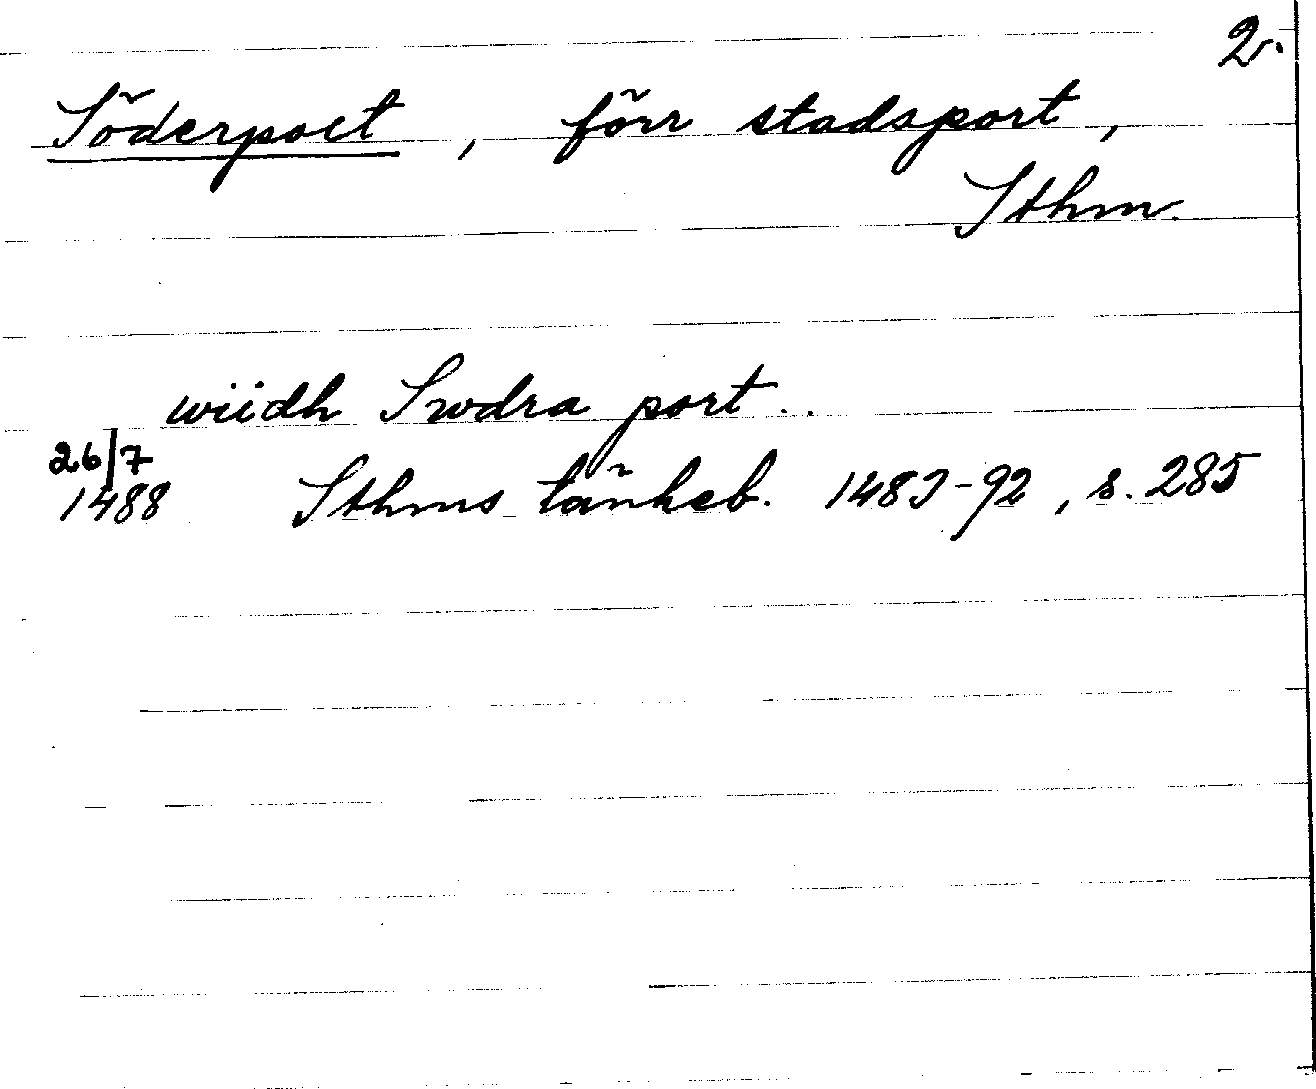 2.
Söderport, förr stadsport,
Sthm.
wiidh Swdra port..
26/7
1488 Sthms tänkeb. 1483-92, s. 285